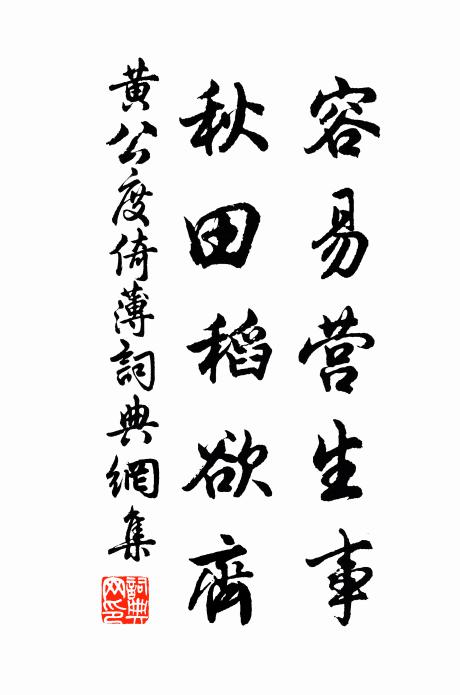 容易营生事
秋田稻欲齊
黄公度倚薄詞典網集
詞典網印